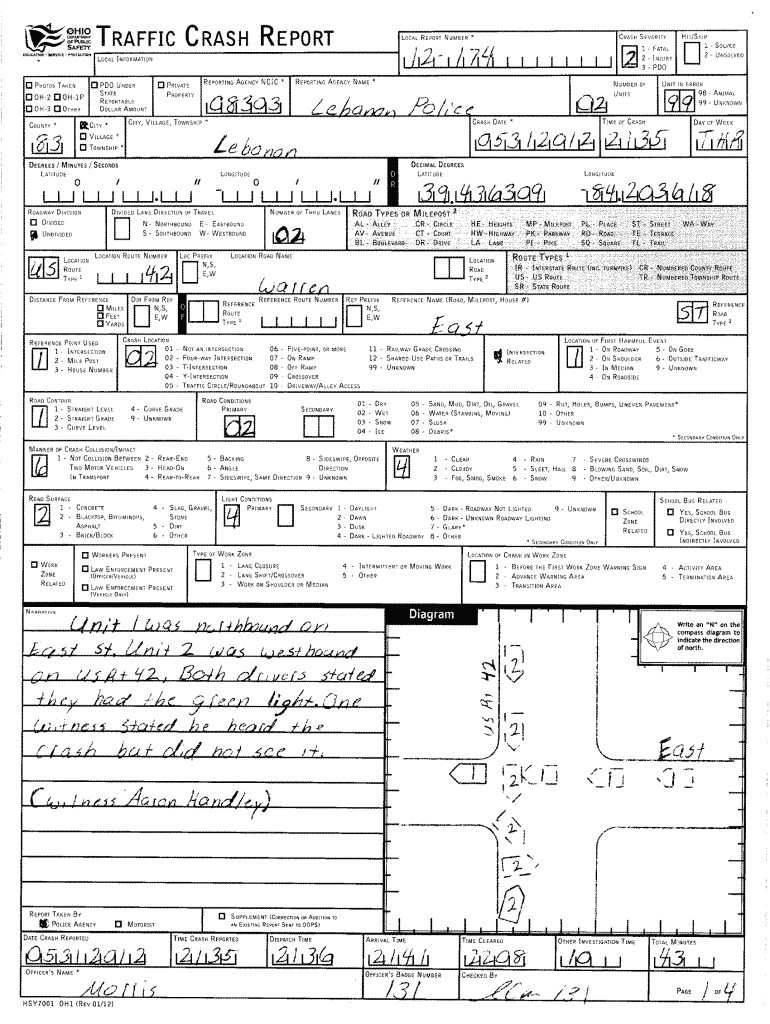 OHIO DEPARTMENT OF PUBLIC SAFETY
EDUCATION • SERVICE • PROTECTION
TRAFFIC CRASH REPORT
LOCAL INFORMATION
LOCAL REPORT NUMBER * 12-174
CRASH SEVERITY 2 1 - FATAL 2 - INJURY 3 - PDO
HIT/SKIP 1 - SOLVED 2 - UNSOLVED
PHOTOS TAKEN OH-2 OH-1P OH-3 OTHER
PDO UNDER STATE REPORTABLE DOLLAR AMOUNT
PRIVATE PROPERTY
REPORTING AGENCY NCIC *
REPORTING AGENCY NAME * Lebanon Police
NUMBER OF UNITS 02
UNIT IN ERROR 99 98 - ANIMAL 99 - UNKNOWN
COUNTY * 83
CITY * VILLAGE * TOWNSHIP *
CITY, VILLAGE, TOWNSHIP * Lebanon
CRASH DATE * 05312012
TIME OF CRASH 2135
DAY OF WEEK THR
DEGREES / MINUTES / SECONDS
LATITUDE LONGITUDE
OR
DECIMAL DEGREES
LATITUDE 39.436309
LONGITUDE -84.203618
ROADWAY DIVISION DIVIDED UNDIVIDED
DIVIDED LANE DIRECTION OF TRAVEL
N - NORTHBOUND E - EASTBOUND
S - SOUTHBOUND W - WESTBOUND
NUMBER OF THRU LANES 02
ROAD TYPES OR MILEPOST 2
AL - ALLEY CR - CIRCLE HE - HEIGHTS MP - MILEPOST PL - PLACE ST - STREET WA - WAY
AV - AVENUE CT - COURT HW - HIGHWAY PK - PARKWAY RD - ROAD TE - TERRACE
BL - BOULEVARD DR - DRIVE LA - LANE PI - PIKE SQ - SQUARE TL - TRAIL
US LOCATION ROUTE TYPE 1
LOCATION ROUTE NUMBER 42
LOC PREFIX N,S, E,W
LOCATION ROAD NAME Warren
LOCATION ROAD TYPE 2
ROUTE TYPES 1
IR - INTERSTATE ROUTE (INC. TURNPIKE) CR - NUMBERED COUNTY ROUTE
US - US ROUTE TR - NUMBERED TOWNSHIP ROUTE
SR - STATE ROUTE
DISTANCE FROM REFERENCE MILES FEET YARDS
DIR FROM REF N,S, E,W
OF
REFERENCE ROUTE TYPE 1
REFERENCE ROUTE NUMBER
REF PREFIX N,S, E,W
REFERENCE NAME (ROAD, MILEPOST, HOUSE #) East
ST REFERENCE ROAD TYPE 2
REFERENCE POINT USED 1
1 - INTERSECTION
2 - MILE POST
3 - HOUSE NUMBER
CRASH LOCATION 02
01 - NOT AN INTERSECTION 06 - FIVE-POINT, OR MORE 11 - RAILWAY GRADE CROSSING
02 - FOUR-WAY INTERSECTION 07 - ON RAMP 12 - SHARED-USE PATHS OR TRAILS
03 - T-INTERSECTION 08 - OFF RAMP 99 - UNKNOWN
04 - Y-INTERSECTION 09 - CROSSOVER
05 - TRAFFIC CIRCLE/ROUNDABOUT 10 - DRIVEWAY/ALLEY ACCESS
INTERSECTION RELATED
LOCATION OF FIRST HARMFUL EVENT 1
1 - ON ROADWAY 5 - ON GORE
2 - ON SHOULDER 6 - OUTSIDE TRAFFICWAY
3 - IN MEDIAN 9 - UNKNOWN
4 - ON ROADSIDE
ROAD CONTOUR 1
1 - STRAIGHT LEVEL 4 - CURVE GRADE
2 - STRAIGHT GRADE 9 - UNKNOWN
3 - CURVE LEVEL
ROAD CONDITIONS
PRIMARY 02 SECONDARY
01 - DRY 05 - SAND, MUD, DIRT, OIL, GRAVEL 09 - RUT, HOLES, BUMPS, UNEVEN PAVEMENT*
02 - WET 06 - WATER (STANDING, MOVING) 10 - OTHER
03 - SNOW 07 - SLUSH 99 - UNKNOWN
04 - ICE 08 - DEBRIS*
* SECONDARY CONDITION ONLY
MANNER OF CRASH COLLISION/IMPACT 6
1 - NOT COLLISION BETWEEN TWO MOTOR VEHICLES IN TRANSPORT
2 - REAR-END 5 - BACKING 8 - SIDESWIPE, OPPOSITE DIRECTION
3 - HEAD-ON 6 - ANGLE
4 - REAR-TO-REAR 7 - SIDESWIPE, SAME DIRECTION 9 - UNKNOWN
WEATHER 4
1 - CLEAR 4 - RAIN 7 - SEVERE CROSSWINDS
2 - CLOUDY 5 - SLEET, HAIL 8 - BLOWING SAND, SOIL, DIRT, SNOW
3 - FOG, SMOG, SMOKE 6 - SNOW 9 - OTHER/UNKNOWN
ROAD SURFACE 2
1 - CONCRETE 4 - SLAG, GRAVEL, STONE
2 - BLACKTOP, BITUMINOUS, ASPHALT 5 - DIRT
3 - BRICK/BLOCK 6 - OTHER
LIGHT CONDITIONS
PRIMARY 4 SECONDARY
1 - DAYLIGHT 5 - DARK - ROADWAY NOT LIGHTED 9 - UNKNOWN
2 - DAWN 6 - DARK - UNKNOWN ROADWAY LIGHTING
3 - DUSK 7 - GLARE*
4 - DARK - LIGHTED ROADWAY 8 - OTHER
* SECONDARY CONDITION ONLY
SCHOOL ZONE RELATED
SCHOOL BUS RELATED
YES, SCHOOL BUS DIRECTLY INVOLVED
YES, SCHOOL BUS INDIRECTLY INVOLVED
WORK ZONE RELATED
WORKERS PRESENT
LAW ENFORCEMENT PRESENT (OFFICER/VEHICLE)
LAW ENFORCEMENT PRESENT (VEHICLE ONLY)
TYPE OF WORK ZONE
1 - LANE CLOSURE 4 - INTERMITTENT OR MOVING WORK
2 - LANE SHIFT/CROSSOVER 5 - OTHER
3 - WORK ON SHOULDER OR MEDIAN
LOCATION OF CRASH IN WORK ZONE
1 - BEFORE THE FIRST WORK ZONE WARNING SIGN 4 - ACTIVITY AREA
2 - ADVANCE WARNING AREA 5 - TERMINATION AREA
3 - TRANSITION AREA
NARRATIVE
Unit 1 was northbound on
East st. Unit 2 was westbound
on US Rt 42. Both drivers stated
they had the green light. One
witness stated he heard the
crash but did not see it.
(witness Aaron Handley)
Diagram
Write an "N" on the compass diagram to indicate the direction of north.
US Rt 42
East
2
2
1 2 1 1 1
2
2
2
REPORT TAKEN BY
POLICE AGENCY MOTORIST
SUPPLEMENT (CORRECTION OR ADDITION TO AN EXISTING REPORT SENT TO ODPS)
DATE CRASH REPORTED 05312012
TIME CRASH REPORTED 2135
DISPATCH TIME 2136
ARRIVAL TIME 2141
TIME CLEARED 2208
OTHER INVESTIGATION TIME 10
TOTAL MINUTES 43
OFFICER'S NAME * Morris
OFFICER'S BADGE NUMBER 131
CHECKED BY 131
PAGE 1 OF 4
HSY7001 OH1 (REV 01/12)